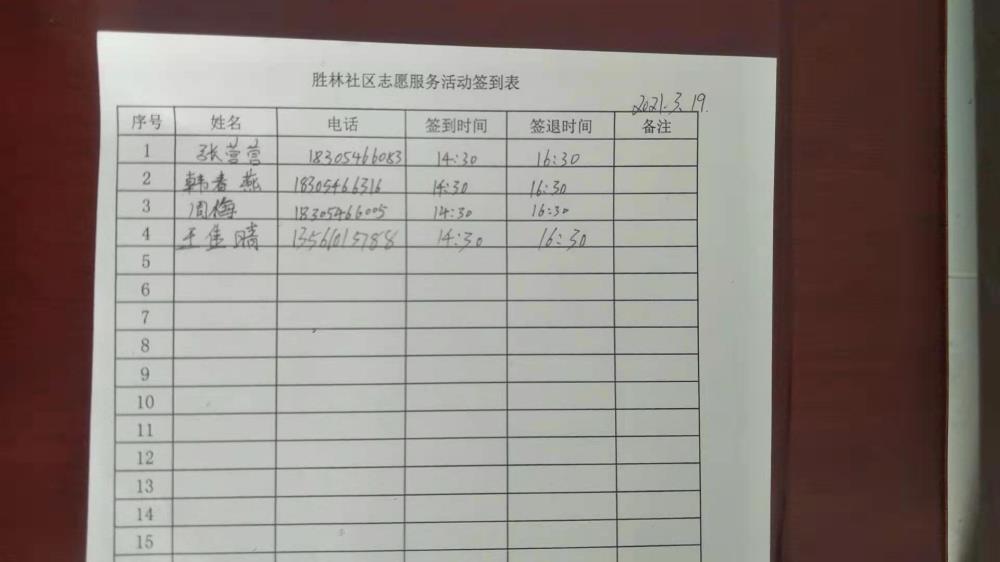 胜林社区志愿服务活动签到表
2021.3.19.
序号 姓名 电话 签到时间 签退时间 备注
1 张营营 18305466083 14:30 16:30
2 韩春燕 18305466316 14:30 16:30
3 周梅 18305466005 14:30 16:30
4 王佳晴 13561015788 14:30 16:30
5
6
7
8
9
10
11
12
13
14
15